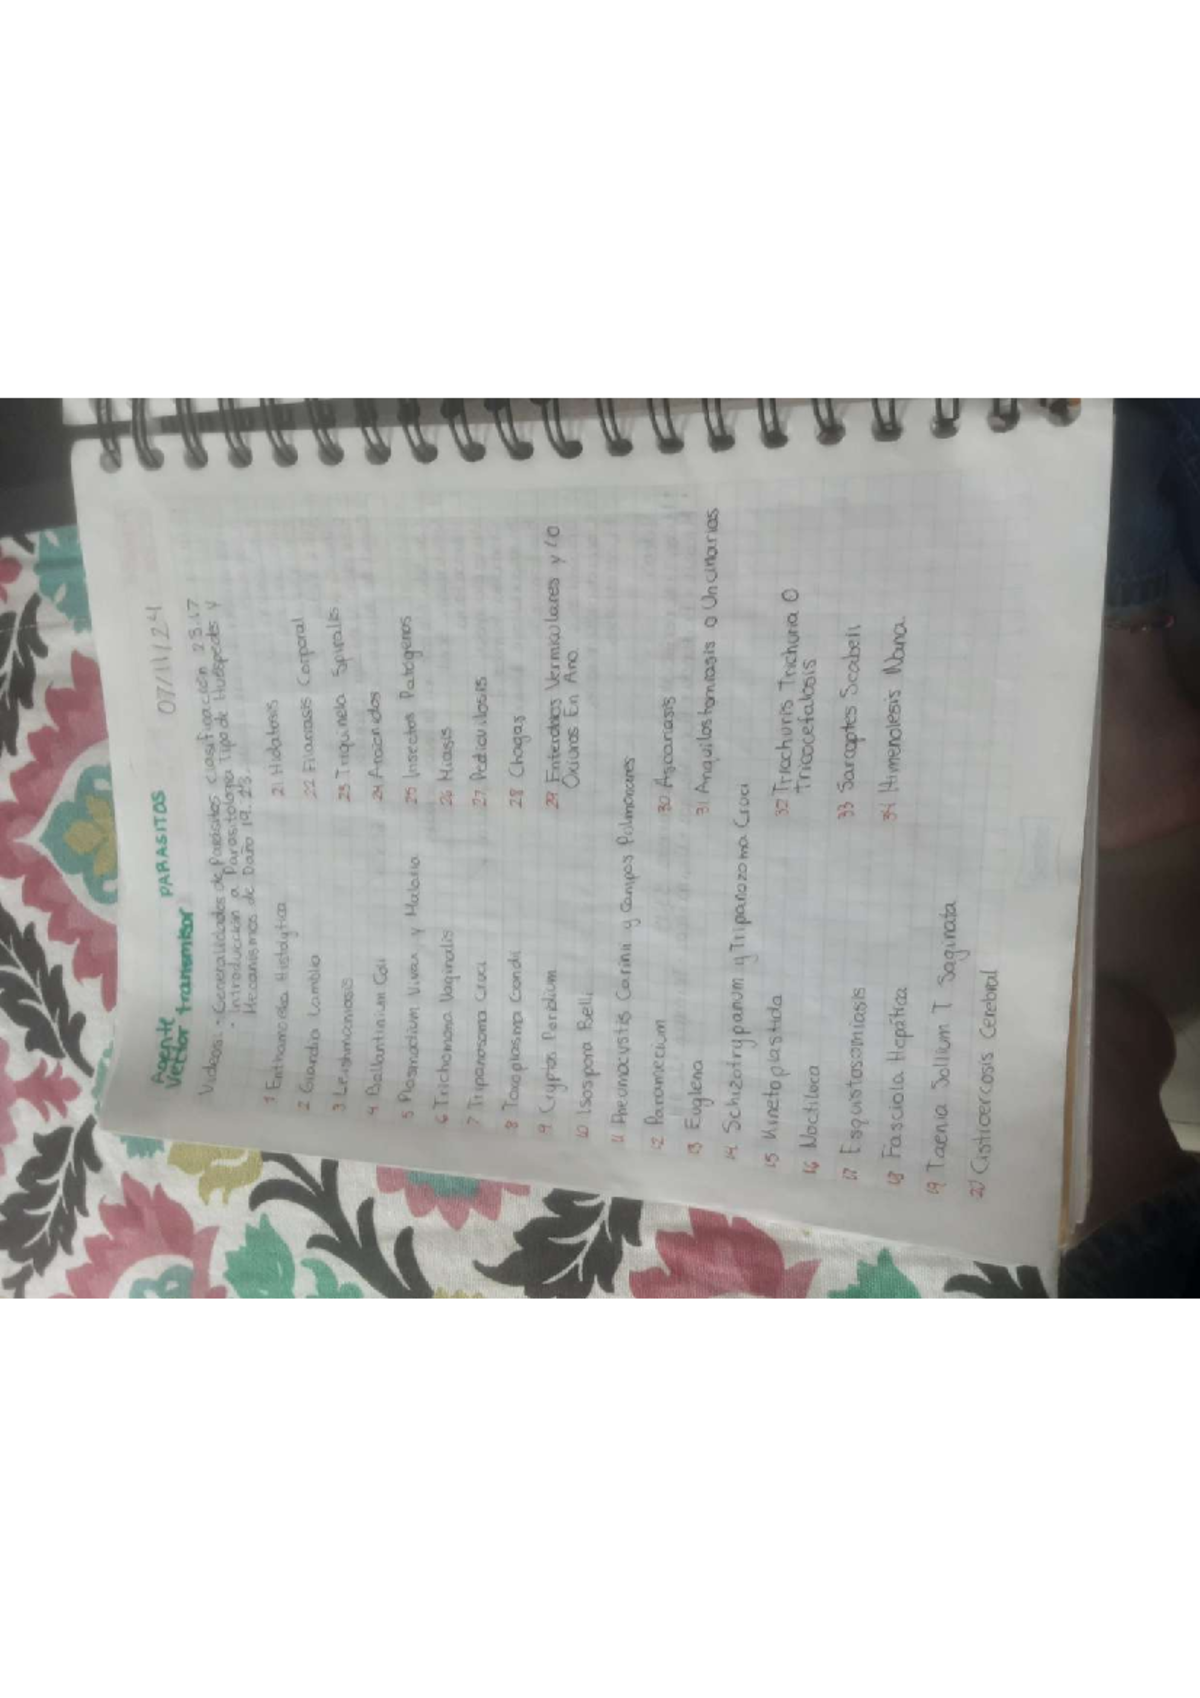 07/11/24
Agente PARASITOS
Vector transmisor
Videos: - Generalidades de Parásitos clasificación 23.17
- Introducción a Parasitología Tipo de Huéspedes y
Mecanismos de Daño 19.23.
1 Enthamoeba Histolytica
2 Giardia Lamblia
3 Leishmaniasis
4 Ballantinium Coli
5 Plasmodium Vivax y Malaria
6 Trichomona Vaginalis
7 Tripanosoma Cruci
8 Toxoplasma Gondi
9 Cryptos Poridium
10 Isospora Belli
11 Pneumocystis Carinii y Campos Pulmonares
12 Paramecium
13 Euglena
14 Schizotrypanum y Tripanozoma Cruci
15 Kinetoplastida
16 Noctiloca
17 Esquistosomiasis
18 Fasciola Hepática
19 Taenia Sollium T Saginata
20 Cisticercosis Cerebral
21 Hidatosis
22 Filariasis Corporal
23 Triquinela Spiralis
24 Aracnidos
25 Insectos Patogenos
26 Miasis
27 Pediculosis
28 Chagas
29 Vermiculares y/o
Oxiuros En Ano
30 Ascariasis
31 Anquilostomiasis o Uncinarias
32 Triochuris Trichuria O
Tricocefalosis
33 Sarcoptes Scabeli
34 Himenolesis Nana.